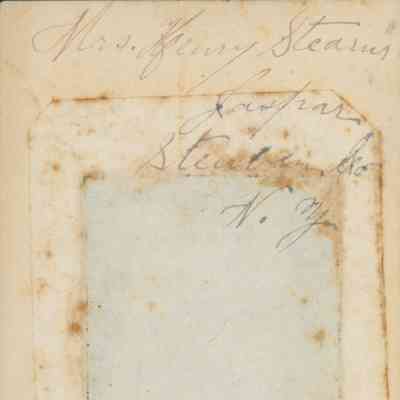 Mrs. Henry Stearns
Jaspar
Steuben Co
N. Y.